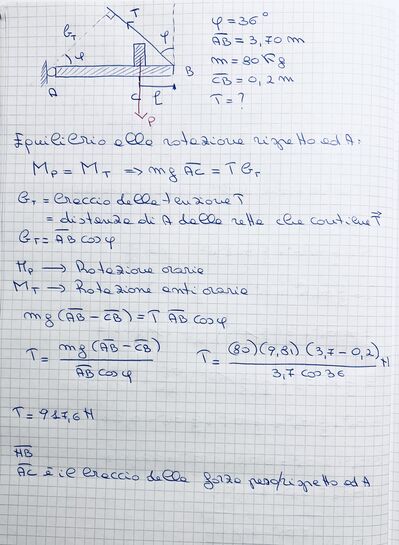 b_T T φ φ
A B
C l
P
φ = 36°
A̅B̅ = 3,70 m
m = 80 Kg
C̅B̅ = 0,2 m
T = ?
Equilibrio alla rotazione rispetto ad A:
M_P = M_T => mg A̅C̅ = T b_T
b_T = braccio della tensione T
= distanza di A dalla retta che contiene T⃗
b_T = A̅B̅ cos φ
M_P → Rotazione oraria
M_T → Rotazione anti oraria
mg (A̅B̅ - C̅B̅) = T A̅B̅ cos φ
T = mg (A̅B̅ - C̅B̅) / A̅B̅ cos φ T = (80)(9,81)(3,7 - 0,2) / 3,7 cos 36 N
T = 917,6 N
A̅B̅
A̅C̅ è il braccio della forza peso rispetto ad A